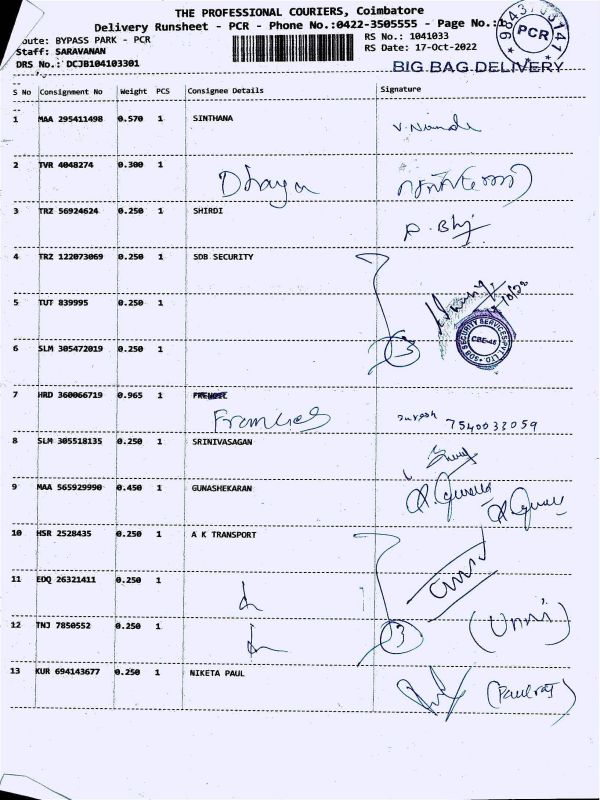 THE PROFESSIONAL COURIERS, Coimbatore
Delivery Runsheet - PCR - Phone No.:0422-3505555 - Page No.:
Route: BYPASS PARK - PCR
RS No.: 1041033
Staff: SARAVANAN
RS Date: 17-Oct-2022
DRS No.: DCJB104103301
BIG BAG DELIVERY
PCR
S No Consignment No Weight PCS Consignee Details Signature
1 MAA 295411498 0.570 1 SINTHANA
2 TVR 4048274 0.300 1
3 TRZ 56924624 0.250 1 SHIRDI
4 TRZ 122073069 0.250 1 SDB SECURITY
5 TUT 839995 0.250 1
SDB SECURITY SERVICES PVT. LTD.
CBE-45
6 SLM 305472019 0.250 1 3
7 HRD 360066719 0.965 1
Francies Suresh 7540033059
8 SLM 305518135 0.250 1 SRINIVASAGAN
9 MAA 565929990 0.450 1 GUNASHEKARAN
10 HSR 2528435 0.250 1 A K TRANSPORT
11 EDQ 26321411 0.250 1
12 TNJ 7850552 0.250 1 3 (Unni)
13 KUR 694143677 0.250 1 NIKETA PAUL (Paulraj)